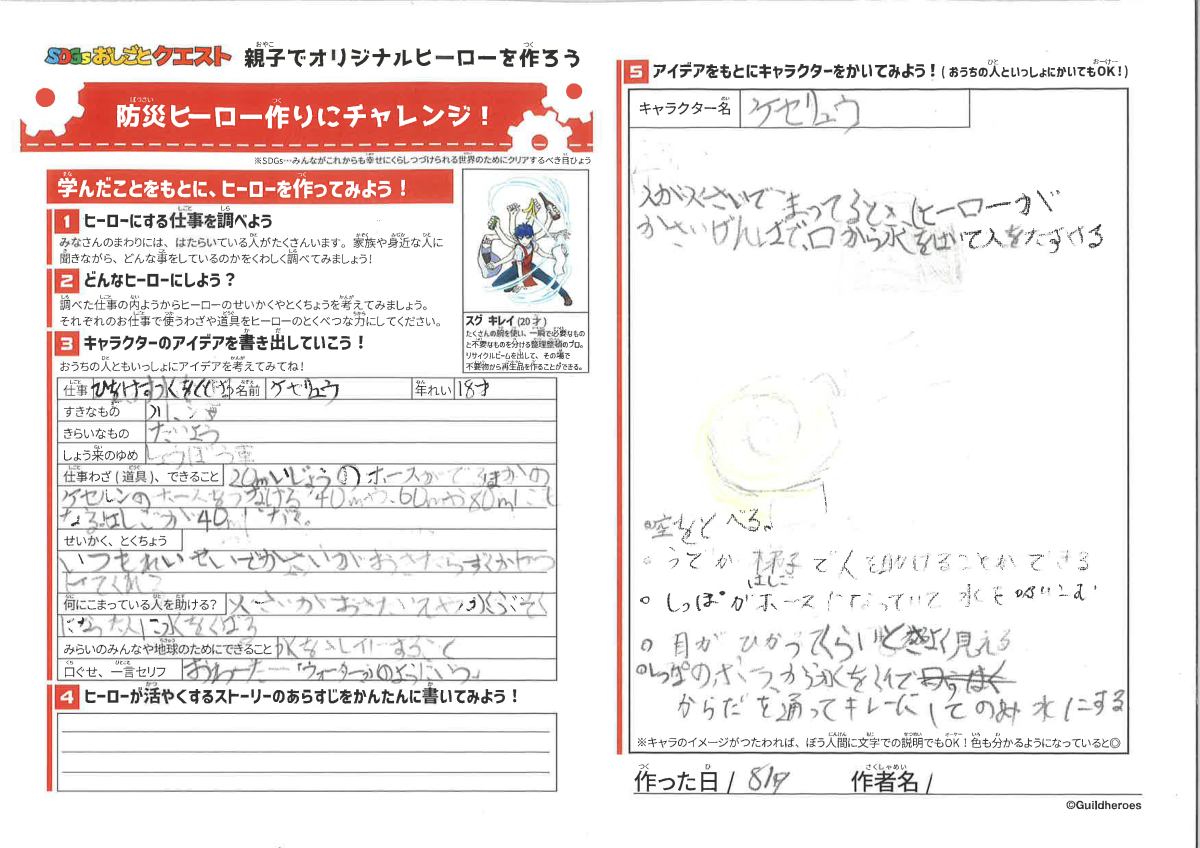 SDGsおしごとクエスト 親子でオリジナルヒーローを作ろう
防災ヒーロー作りにチャレンジ！
※SDGs…みんながこれからも幸せにくらしつづけられる世界のためにクリアするべき目ひょう
学んだことをもとに、ヒーローを作ってみよう！
1 ヒーローにする仕事を調べよう
みなさんのまわりには、はたらいている人がたくさんいます。家族や身近な人に
聞きながら、どんな事をしているのかをくわしく調べてみましょう！
2 どんなヒーローにしよう？
調べた仕事の内ようからヒーローのせいかくやとくちょうを考えてみましょう。
それぞれのお仕事で使うわざや道具をヒーローのとくべつな力にしてください。
スグ キレイ (20才)
たくさんの腕を使い、一瞬で必要なもの
と不要なものを分ける整理整頓のプロ。
リサイクルビームを出して、その場で
不要物から再生品を作ることができる。
3 キャラクターのアイデアを書き出していこう！
おうちの人ともいっしょにアイデアを考えてみてね！
仕事 名前 ケセリュウ 年れい 18才
すきなもの
きらいなもの たいよう
しょう来のゆめ しょうぼう車
仕事わざ (道具)、できること 20mいじょうのホースがでるほかの
ケセルンのホースをつなげる 40mや、60mや80mにも
なる。はしごが40m
せいかく、とくちょう
いつもれいせいでかさいがおきたらすぐかけつ
けてくれる
何にこまっている人を助ける？ 火さいがおきたいえや
になった人に水をくばる
みらいのみんなや地球のためにできること 水をキレイにすること
口ぐせ、一言セリフ 「ウォーターカのようにいつ」
4 ヒーローが活やくするストーリーのあらすじをかんたんに書いてみよう！
5 アイデアをもとにキャラクターをかいてみよう！(おうちの人といっしょにかいてもOK！)
キャラクター名 ケセリュウ
人が火さいでこまってるとき、ヒーローが
かさいげんばで、口から水をはいて人をたすける
。空をとべる。
。うでが梯子で人を助けることができる
はしご
。しっぽがホースになっていて水をすいこむ
。目がひかってくらいとき良く見える
からだを通ってキレーにしてのみ水にする
※キャラのイメージがつたわれば、ぼう人間に文字での説明でもOK！色も分かるようになっていると◎
作った日/ 8/17 作者名/
©Guildheroes